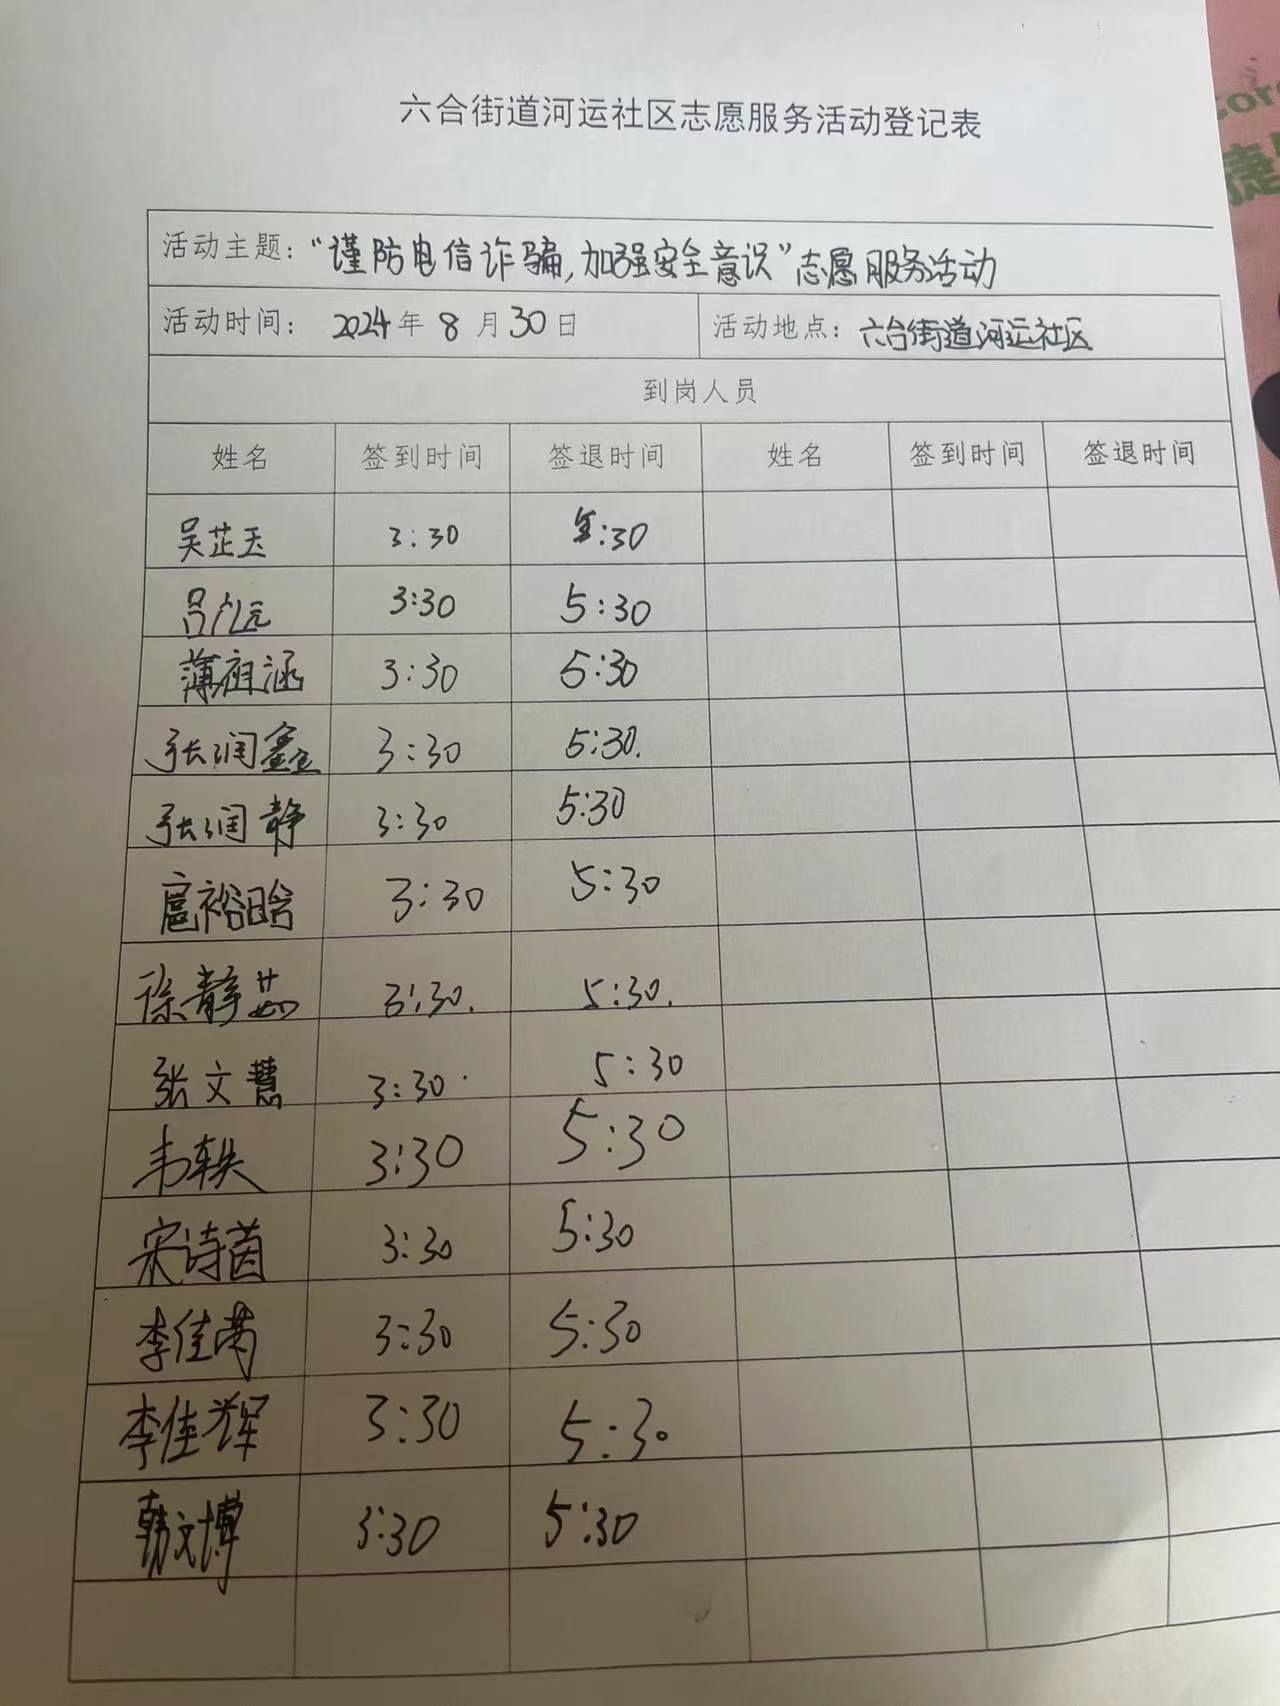 六合街道河运社区志愿服务活动登记表
活动主题：“谨防电信诈骗，加强安全意识”志愿服务活动
活动时间： 2024年 8 月 30 日 活动地点：六合街道河运社区
到岗人员
姓名 签到时间 签退时间 姓名 签到时间 签退时间
吴芷玉 3:30 5:30
吕广元 3:30 5:30
薄祖涵 3:30 5:30
张润鑫 3:30 5:30.
张润静 3:30 5:30
扈裕晗 3:30 5:30
徐静茹 3:30. 5:30.
张文慧 3:30. 5:30
韦轶 3:30 5:30
宋诗茵 3:30 5:30
李佳芮 3:30 5:30
李佳辉 3:30 5:30
韩文博 3:30 5:30
捷